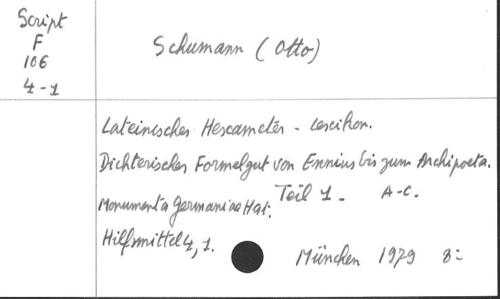 Script
F
106
4-1
Schumann (Otto)
Lateinisches Hexameter - Lexikon.
Dichterisches Formelgut von Ennius bis zum Archipoeta.
Teil 1. A-C.
Monumenta Germaniae Hist.
Hilfsmittel 4, 1.
München 1979 8=